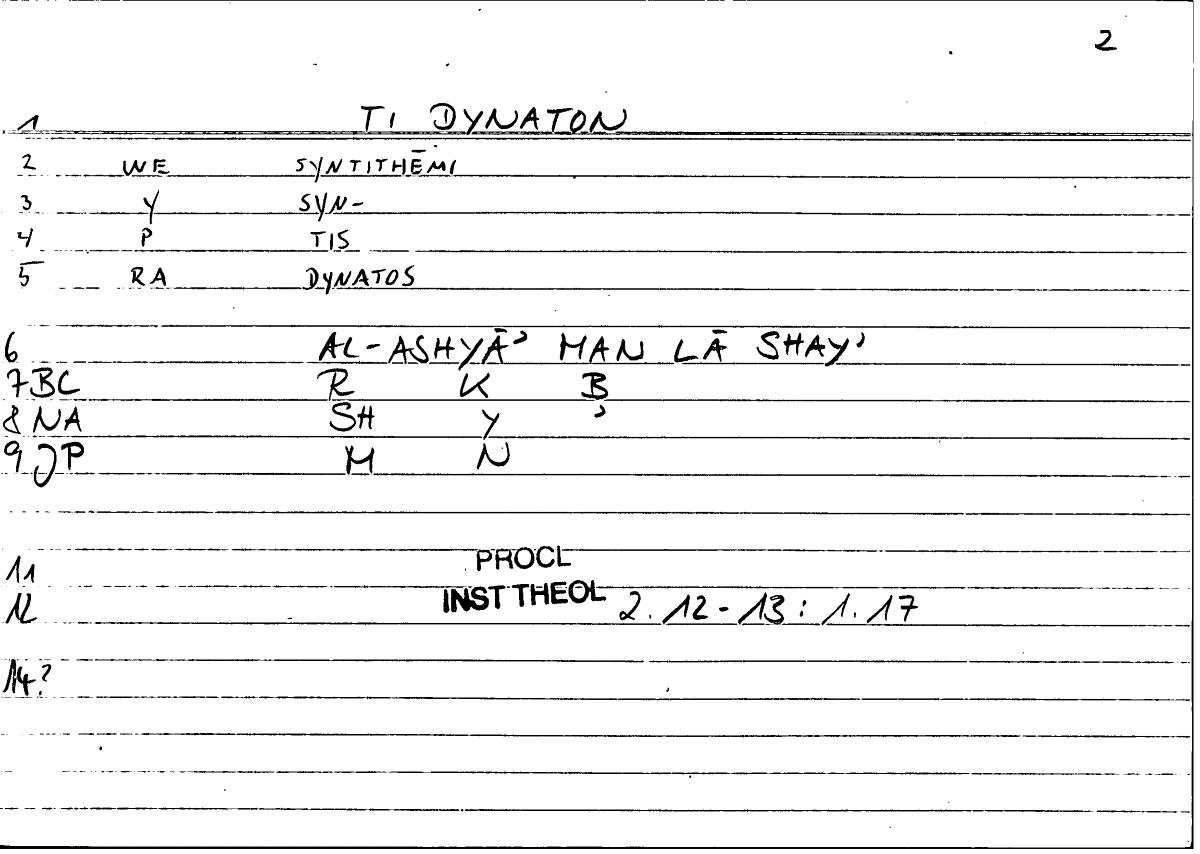 2
1 TI DYNATON
2 WE SYNTITHĒMI
3 Y SYN-
4 P TIS
5 RA DYNATOS
6 AL-ASHYĀ' MAN LĀ SHAY'
7 BC R K B
8 NA SH Y '
9 JP M N
11 PROCL
12 INST THEOL 2.12-13: 1.17
14?